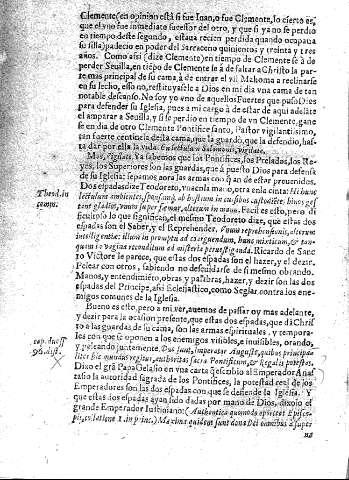 Clemente (en opinion està si fue Iuan, o fue Clemente, lo cierto es,
que el vno fue inmediato sucessor del otro, y que si ya no se perdio
en tiempo deste segundo, estaua recien perdida quando ocupaua
su silla) padecio en poder del Sarraceno quinientos y treinta y tres
años. Como assi (dize Clemente) en tiempo de Clemente se à de
perder Seuilla, en tiẽpo de Clemente le à de faltar a Christo la par-
te mas principal de su cama, à de entrar el vil Mahoma a reclinarse
en su lecho, esso no, restituyasele a Dios en mi dia vna cama de tan
notable descanso. No soy yo vno de aquellos Fuertes que puso Dios
para defender su Iglesia, pues a mi cargo à de estar de aqui adelãte
el amparar a Seuilla, y si se perdio en tiempo de vn Clemente, gane
se en dia de otro Clemente Pontifice santo, Pastor vigilantissimo,
tan fuerte centinela desta cama, que la guardò, que la defendio, has-
ta dar por ella la vida. En lectulum Salomonis, vigilate.
Mas, vigilate. Ya sabemos que los Pontifices, los Prelados, los Re-
yes, los Superiores son las guardas, que à puesto Dios para defensa
de su Iglesia; sepamos aora las armas con q̃ an de estar preuenidos.
Dos espadas dize Teodoreto, vna en la mano, otra en la cinta:
Theod. in
comm.
lectulum ambientes, sponsumq̃; ab hostium incursibus custodientes, binos ges
tant gladios, vnum super fœmur, alterum in manu. Facil es esto, pero di
ficultoso lo que significan, el mesmo Teodoreto dize, que estas dos
espadas son el Saber, y el Reprehender.
Ricardo de Sanc
to Victore le parece, que estas dos espadas son el hazer, y el dezir.
Pelear con otros, i abiendo no descuidarse de si mesmo obrando.
Manos, y entendimiento, obras y palabras, hazer, y dezir son las dos
espadas del Principe, assi Eclesiastico, como Seglar contra los ene-
migos comunes de la Iglesia.
Bueno es esso, pero a mi ver, auemos de passar oy mas adelante,
y dezir para la ocasion presente, que estas dos espadas, que dà Christ
to a las guardas de su cama, son las armas espirituales, y tempora-
les con que se oponen a los enemigos visibles, e inuisibles, orando,
y peleando juntamente. Duo sunt, imperator Auguste, quibus principa
cap. duo ff
96. dist.
liter hic mundus regitur, authoritas sacra Pontificum, & regalis potestas.
Dixo el grã Papa Gelasio en vna carta q̃ escribio al Emperador Anas
tasio la autoridad sagrada de los Pontifices, la potestad real de los
Emperadores son las dos espadas con que se defiende la Iglesia. Y
que estas dos espadas ayan sido dadas por mano de Dios, dixolo el
grande Emperador Iustiniano: (Authentica quomodo oporteat Episco-
pos, collatione 1. in princ.) Maxima quidem sunt dona Dei omnibus à super
na